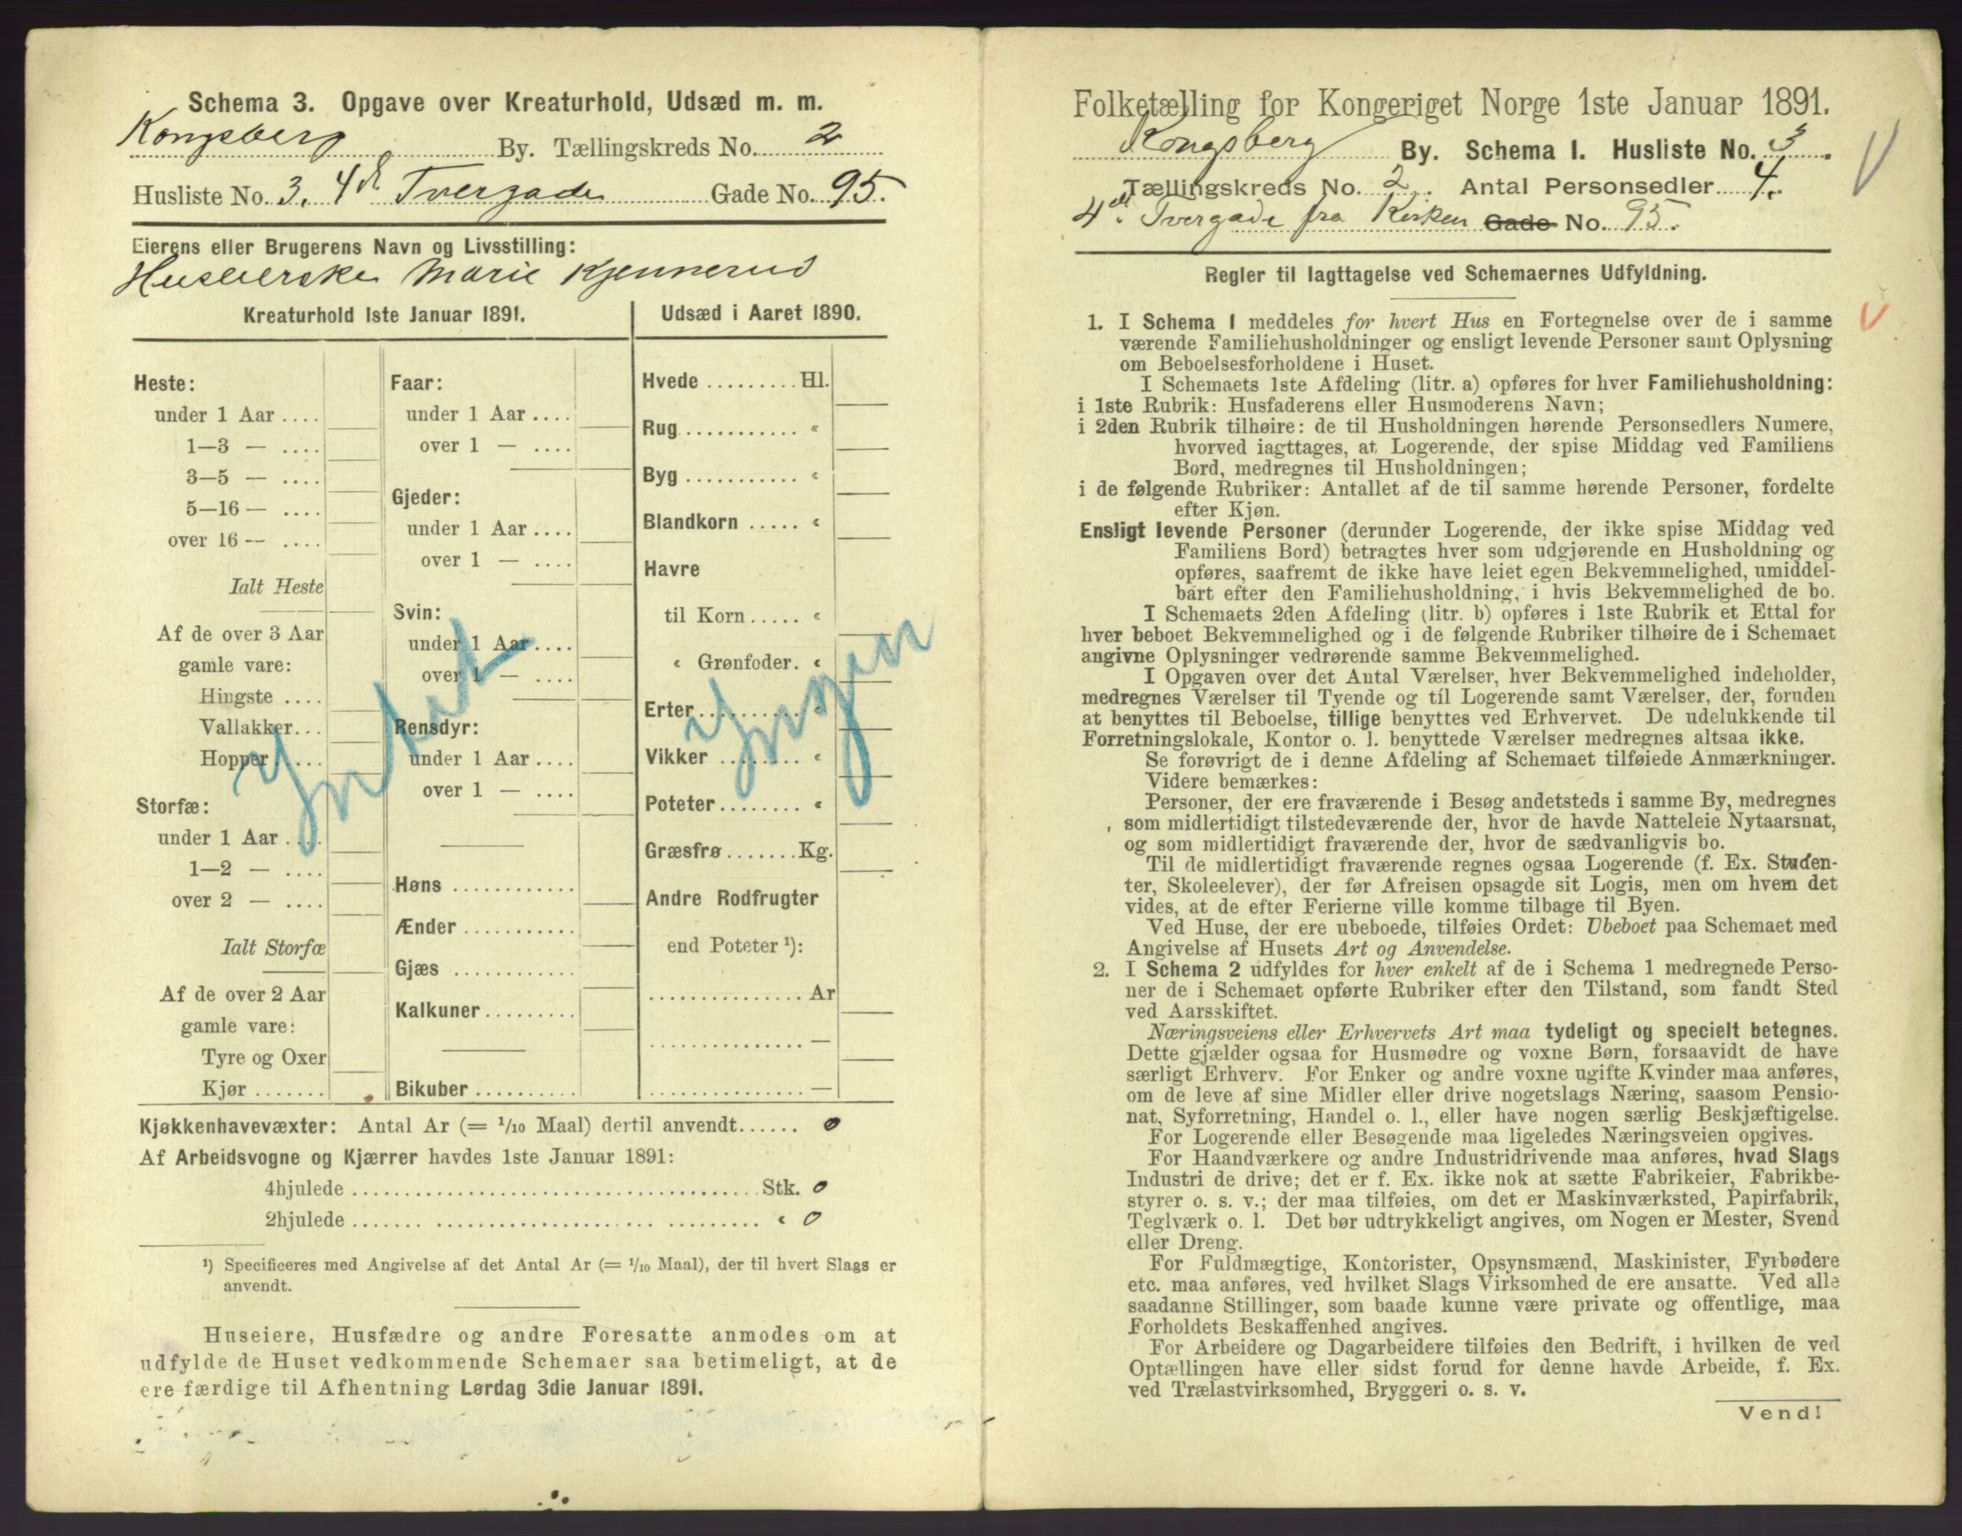 Schema 3. Opgave over Kreaturhold, Udsæd m. m.
Kongsberg By. Tællingskreds No. 2
Husliste No. 3. 4de Tvergade Gade No. 95.
Eierens eller Brugerens Navn og Livsstilling:
Huseierske Marie Kjennerud
Kreaturhold 1ste Januar 1891.
Heste:
under 1 Aar ....
1—3 — ....
3—5 — ....
5—16 — ....
over 16 — ....
Ialt Heste
Af de over 3 Aar
gamle vare:
Hingste ....
Vallakker...
Hopper ....
Storfæ:
under 1 Aar ....
1—2 — ....
over 2 — ....
Ialt Storfæ
Af de over 2 Aar
gamle vare:
Tyre og Oxer
Kjør .......
Intet
Faar:
under 1 Aar ....
over 1 — ....
Gjeder:
under 1 Aar ....
over 1 — ....
Svin:
under 1 Aar ....
over 1 — ....
Rensdyr:
under 1 Aar ....
over 1 — ....
Høns ............
Ænder ...........
Gjæs ............
Kalkuner .........
Bikuber ..........
Udsæd i Aaret 1890.
Hvede ......... Hl.
Rug ........... «
Byg ........... «
Blandkorn ..... «
Havre
til Korn ..... «
« Grønfoder. «
Erter .......... «
Vikker ........ «
Poteter ........ «
Græsfrø ....... Kg.
Andre Rodfrugter
end Poteter ¹):
............... Ar
............... —
............... —
Ingen
Kjøkkenhavevæxter: Antal Ar (= 1/10 Maal) dertil anvendt...... 0
Af Arbeidsvogne og Kjærrer havdes 1ste Januar 1891:
4hjulede ........................................ Stk. 0
2hjulede ........................................ « 0
¹) Specificeres med Angivelse af det Antal Ar (= 1/10 Maal), der til hvert Slags er
anvendt.
Huseiere, Husfædre og andre Foresatte anmodes om at
udfylde de Huset vedkommende Schemaer saa betimeligt, at de
ere færdige til Afhentning Lørdag 3die Januar 1891.
Folketælling for Kongeriget Norge 1ste Januar 1891.
Kongsberg By. Schema I. Husliste No. 3.
Tællingskreds No. 2. Antal Personsedler 4.
4de Tvergade fra Kirken Gade No. 95.
Regler til Iagttagelse ved Schemaernes Udfyldning.
1. I Schema 1 meddeles for hvert Hus en Fortegnelse over de i samme
værende Familiehusholdninger og ensligt levende Personer samt Oplysning
om Beboelsesforholdene i Huset.
I Schemaets 1ste Afdeling (litr. a) opføres for hver Familiehusholdning:
i 1ste Rubrik: Husfaderens eller Husmoderens Navn;
i 2den Rubrik tilhøire: de til Husholdningen hørende Personsedlers Numere,
hvorved iagttages, at Logerende, der spise Middag ved Familiens
Bord, medregnes til Husholdningen;
i de følgende Rubriker: Antallet af de til samme hørende Personer, fordelte
efter Kjøn.
Ensligt levende Personer (derunder Logerende, der ikke spise Middag ved
Familiens Bord) betragtes hver som udgjørende en Husholdning og
opføres, saafremt de ikke have leiet egen Bekvemmelighed, umiddel-
bart efter den Familiehusholdning, i hvis Bekvemmelighed de bo.
I Schemaets 2den Afdeling (litr. b) opføres i 1ste Rubrik et Ettal for
hver beboet Bekvemmelighed og i de følgende Rubriker tilhøire de i Schemaet
angivne Oplysninger vedrørende samme Bekvemmelighed.
I Opgaven over det Antal Værelser, hver Bekvemmelighed indeholder,
medregnes Værelser til Tyende og til Logerende samt Værelser, der, foruden
at benyttes til Beboelse, tillige benyttes ved Erhvervet. De udelukkende til
Forretningslokale, Kontor o. l. benyttede Værelser medregnes altsaa ikke.
Se forøvrigt de i denne Afdeling af Schemaet tilføiede Anmærkninger.
Videre bemærkes:
Personer, der ere fraværende i Besøg andetsteds i samme By, medregnes
som midlertidigt tilstedeværende der, hvor de havde Natteleie Nytaarsnat,
og som midlertidigt fraværende der, hvor de sædvanligvis bo.
Til de midlertidigt fraværende regnes ogsaa Logerende (f. Ex. Studen-
ter, Skoleelever), der før Afreisen opsagde sit Logis, men om hvem det
vides, at de efter Ferierne ville komme tilbage til Byen.
Ved Huse, der ere ubeboede, tilføies Ordet: Ubeboet paa Schemaet med
Angivelse af Husets Art og Anvendelse.
2. I Schema 2 udfyldes for hver enkelt af de i Schema 1 medregnede Perso-
ner de i Schemaet opførte Rubriker efter den Tilstand, som fandt Sted
ved Aarsskiftet.
Næringsveiens eller Erhvervets Art maa tydeligt og specielt betegnes.
Dette gjælder ogsaa for Husmødre og voxne Børn, forsaavidt de have
særligt Erhverv. For Enker og andre voxne ugifte Kvinder maa anføres,
om de leve af sine Midler eller drive nogetslags Næring, saasom Pensio-
nat, Syforretning, Handel o. l., eller have nogen særlig Beskjæftigelse.
For Logerende eller Besøgende maa ligeledes Næringsveien opgives.
For Haandværkere og andre Industridrivende maa anføres, hvad Slags
Industri de drive; det er f. Ex. ikke nok at sætte Fabrikeier, Fabrikbe-
styrer o. s. v.; der maa tilføies, om det er Maskinværksted, Papirfabrik,
Teglværk o. l. Det bør udtrykkeligt angives, om Nogen er Mester, Svend
eller Dreng.
For Fuldmægtige, Kontorister, Opsynsmænd, Maskinister, Fyrbødere
etc. maa anføres, ved hvilket Slags Virksomhed de ere ansatte. Ved alle
saadanne Stillinger, som baade kunne være private og offentlige, maa
Forholdets Beskaffenhed angives.
For Arbeidere og Dagarbeidere tilføies den Bedrift, i hvilken de ved
Optællingen have eller sidst forud for denne havde Arbeide, f. Ex.
ved Trælastvirksomhed, Bryggeri o. s. v.
Vend!